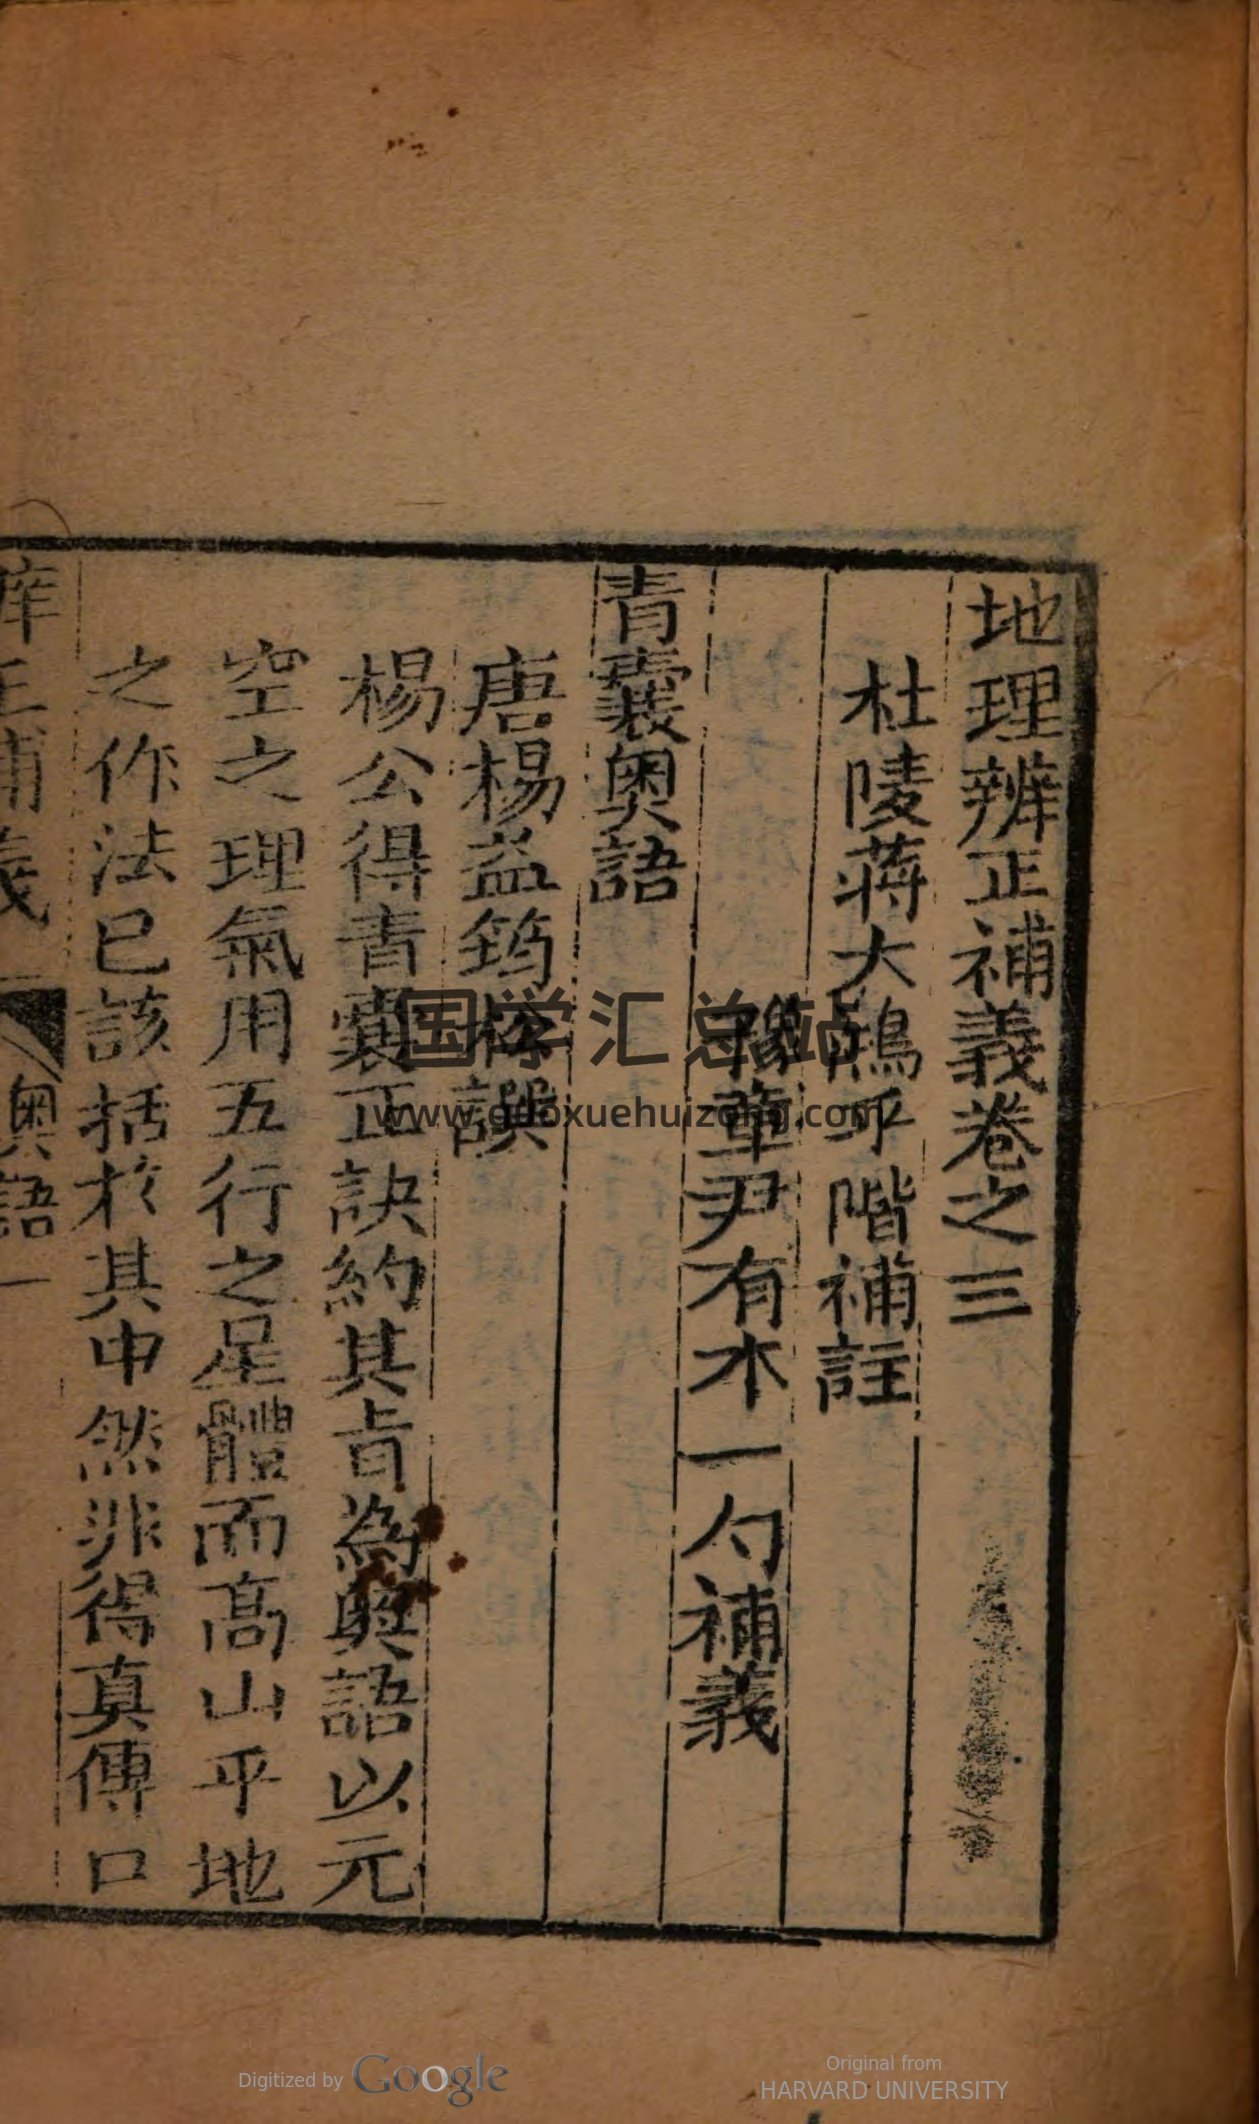 地理辨正補義卷之三
杜陵蔣大鴻平階補註
豫章尹有本一勺補義
青囊奧語
唐楊益筠松譔
楊公得青囊正訣約其旨為奧語以元
空之理氣用五行之星體而高山平地
之作法已該括於其中然非得真傳口
辨正補義
奧語
一
国学汇总站
www.guoxuehuizong.com
Digitized by Google
Original from
HARVARD UNIVERSITY